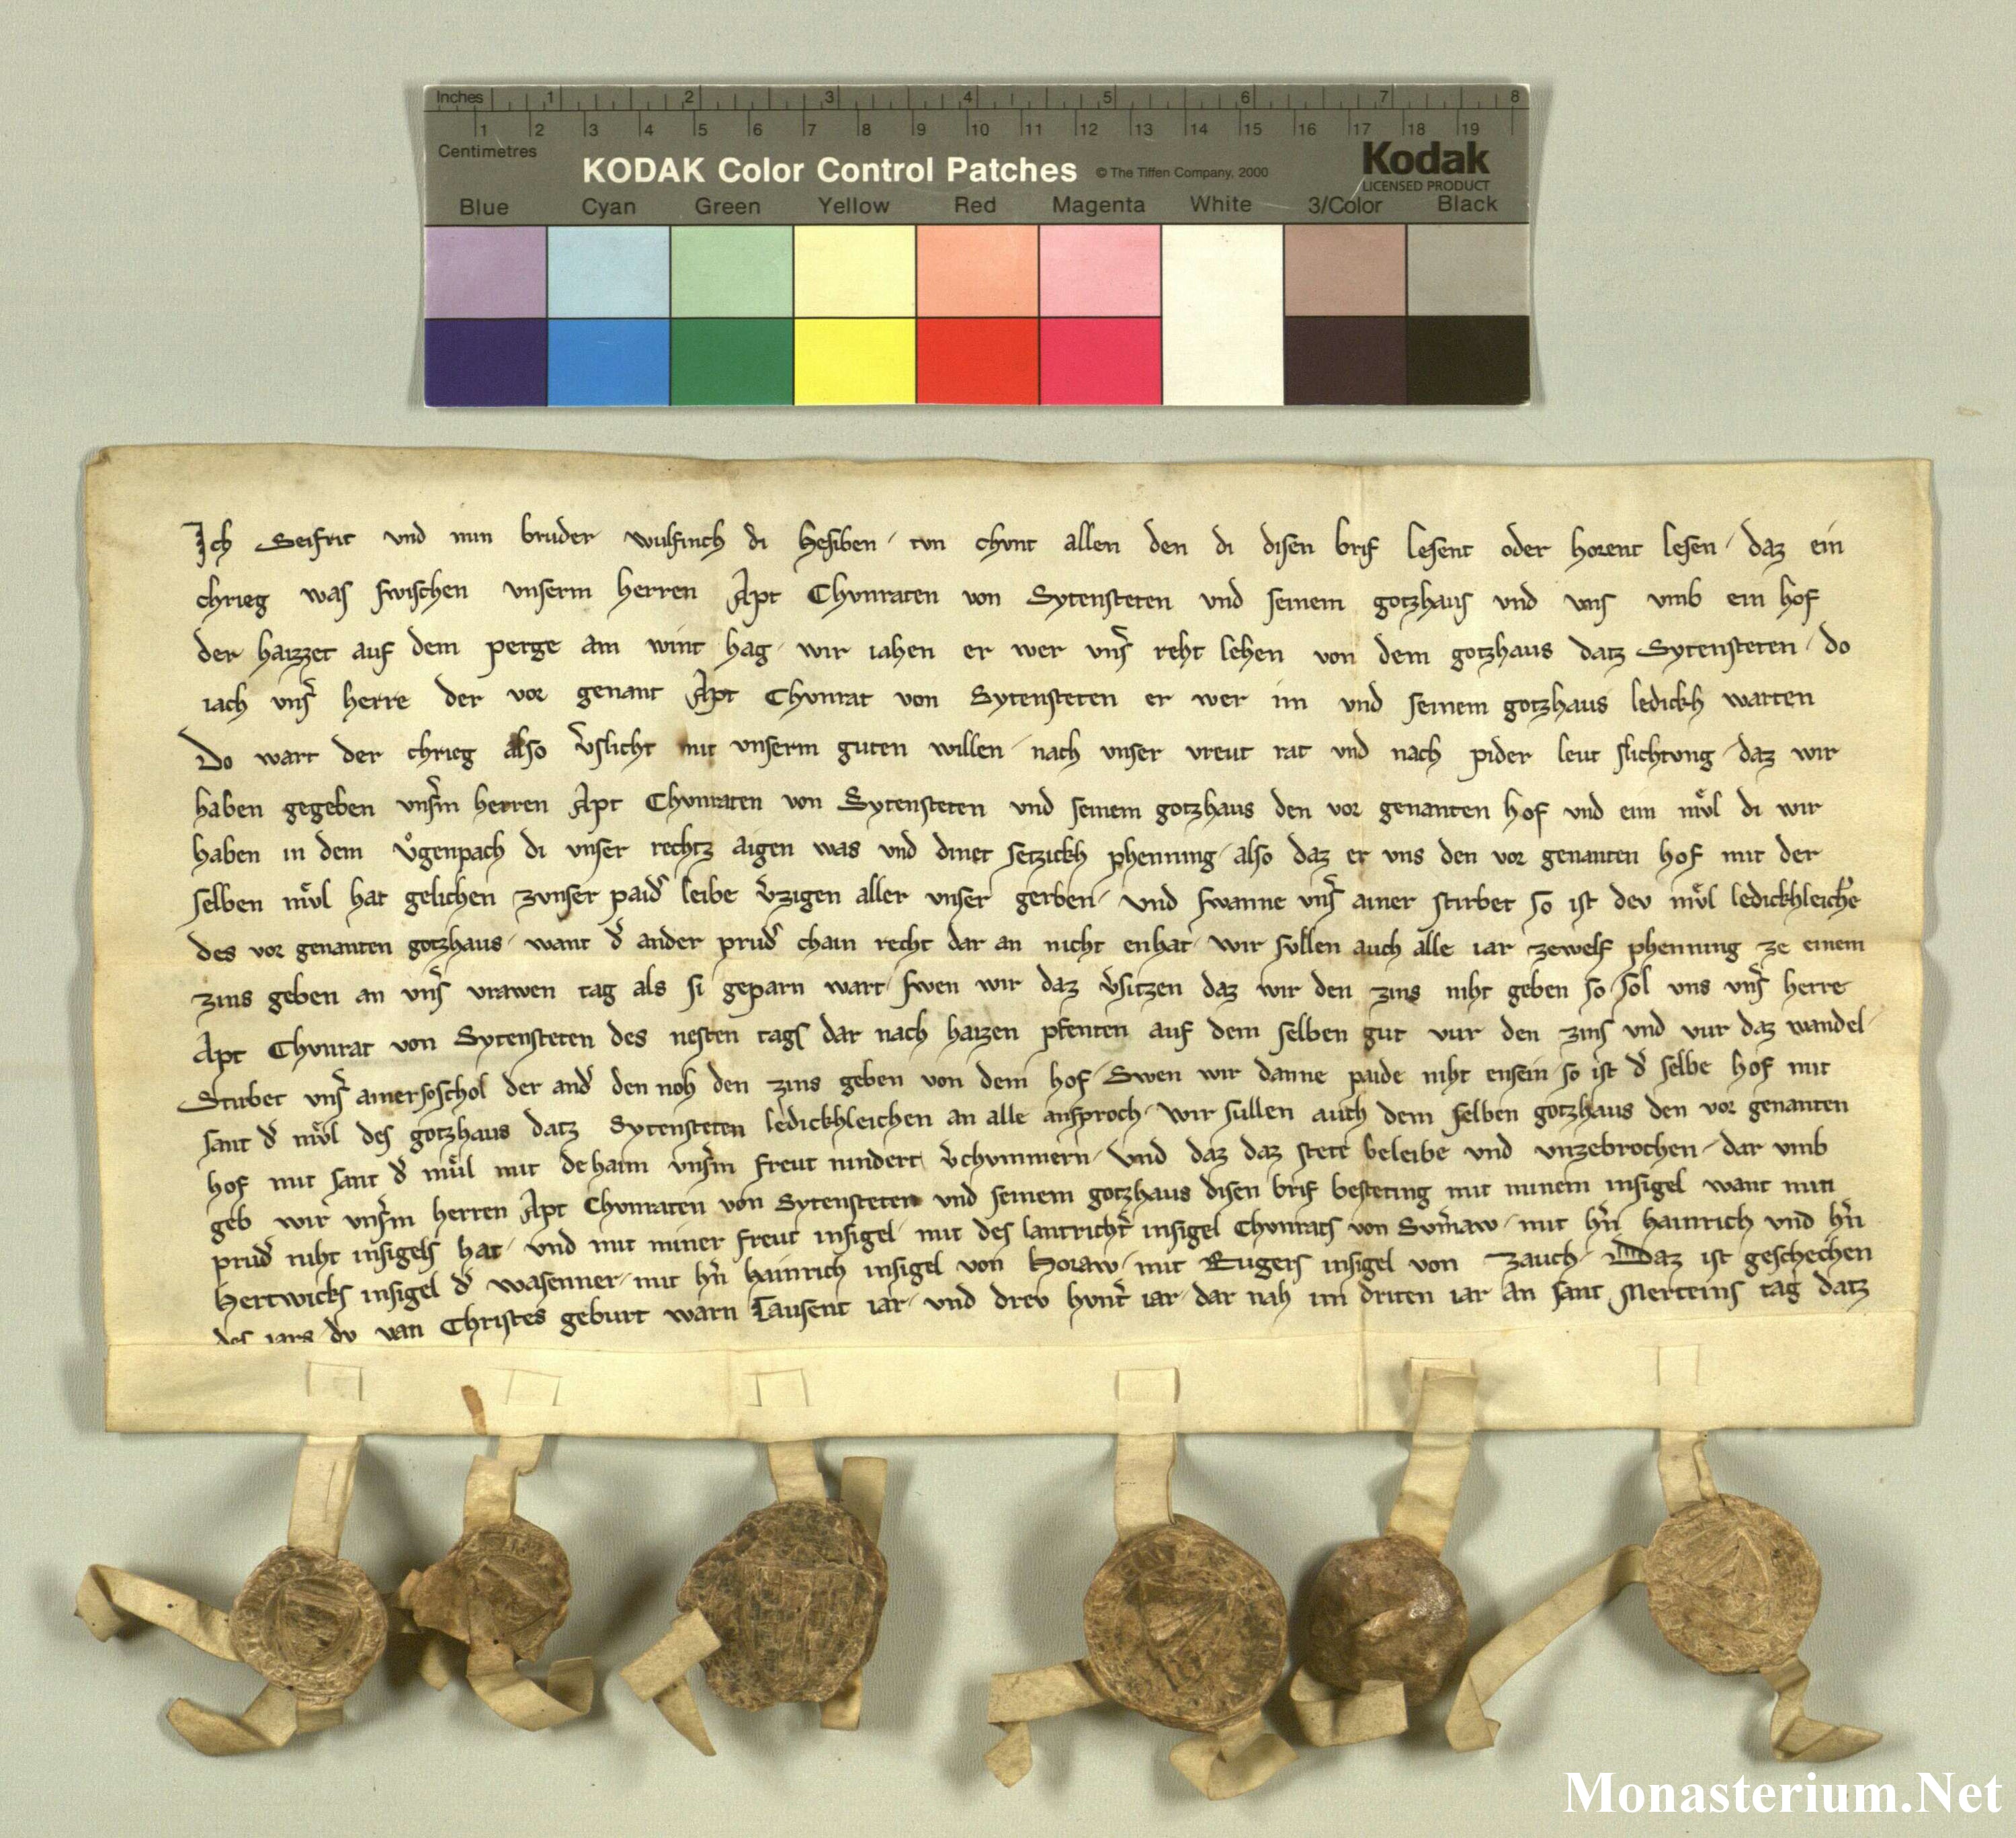 Inches 1 2 3 4 5 6 7 8
1 2 3 4 5 6 7 8 9 10 11 12 13 14 15 16 17 18 19
Centimetres
KODAK Color Control Patches © The Tiffen Company, 2000 Kodak
LICENSED PRODUCT
Blue Cyan Green Yellow Red Magenta White 3/Color Black
Ich Seifrit vnd min bruder wulfinch di hesiben / tvn chvnt allen den di disen brif lesent oder horent lesen / daz ein
chrieg was swischen vnserm herren Apt Chvnraten von Sytensteten vnd seinem gotzhaus vnd vns vmb ein hof
der haizzet auf dem perge am wint hag / wir iahen er wer vns͛ reht lehen von dem gotzhaus datz Sytensteten / do
iach vns͛ herre der vor genant Apt Chvnrat von Sytensteten er wer im vnd seinem gotzhaus ledickh warten
Do wart der chrieg also v͛slicht mit vnserm guten willen / nach vnser vreut rat vnd nach pider leut slichtvng / daz wir
haben gegeben vns͛m herren Apt Chvnraten von Sytensteten vnd seinem gotzhaus den vor genanten hof vnd ein mv̊l di wir
haben in dem v̊genpach di vnser rechtz aigen was vnd dinet setzickh phenning / also daz er vns den vor genanten hof mit der
selben mv̊l hat gelichen zvnser paid͛ leibe v͛zigen aller vnser gerben / vnd swanne vns͛ ainer stirbet so ist dev mv̊l ledickhleiche
des vor genanten gotzhaus / want d͛ ander prud͛ chain recht dar an nicht enhat / wir svllen auch alle iar zewelf phenning ze einem
zins geben an vns͛ vrawen tag als si geparn wart / swen wir daz v͛sitzen daz wir den zins niht geben so sol vns vns͛ herre
Apt Chvnrat von Sytensteten des nesten tags dar nach haizen pfenten auf dem selben gut vur den zins vnd vur daz wandel /
Stirbet vns͛ ainer so schol der and͛ den noh den zins geben von dem hof / Swen wir danne paide niht ensein / so ist d͛ selbe hof mit
sant d͛ mv̊l des gotzhaus datz Sytensteten ledickhleichen an alle ansproch / wir sullen auch dem selben gotzhaus den vor genanten
hof mit sant d͛ mv̊l mit dehaim vns͛m freut nindert v͛chvmmern / vnd daz daz stete beleibe vnd vnzebrochen / dar vmb
geb wir vns͛m herren Apt Chvnraten von Sytensteten vnd seinem gotzhaus disen brif besteting mit minem insigel want min
prud͛ niht insigels hat / vnd mit miner freut insigel / mit des lantricht͛ insigel Chvnrats von Svm͛aw / mit h͛n hainrich vnd h͛n
Hertwicks insigel d͛ wasenner / mit h͛n hainrich insigel von Horaw / mit Rugers insigel von Zauch / Daz ist geschechen
des iars dv van Christes geburt warn Tausent iar / vnd drev hvnt͛ iar / dar nah im driten iar an sant Merteins tag datz
Monasterium.Net